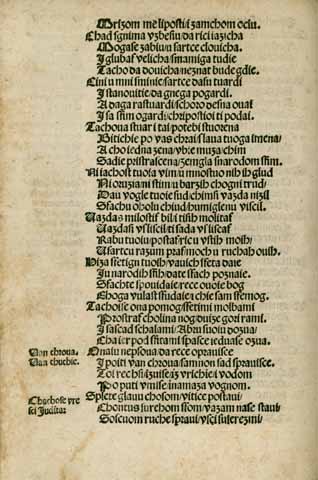 Mrizom me lipostii zamchom ociu.
Chad sgnima vzbesiu da rici iazicha
Mogase zabiuu u sartce clouicha.
I glubas velicha smamiga tudie
Tacho da douicha neznat bude gdie.
Cini u mni sminie/sartce dasu tuardi
I stanouitie/da gnega pogardi.
A daga rastuardi/schoro desna ouas
I sa stim ogardi/chripostioi ti podai.
Tachoua stuar i tai/potebi stuorena
Bitichie po vas chrai slaua tuoga imena/
A cho iedna zena/vbie muza chim
Sadie pristrascena/zemgla snarodom stim.
Ni iachost tuoia vim/u mnostuo nih ih glud
Ni oruzia ni stim/u barzih chogni trud/
Dau vogle tuoie sud chimsi vazda nizil
Sfachu oholu chiud humiglenu viscil.
Uazdas milostif bil i tisih molitaf
Uazdas vslisil ti sada vslisaf
Rabu tuoiu/postaf ricu vstih moih/
Usartcu razum praf/moch u ruchah ouih.
Niza sfetigu tuoih/vauich sfeta daie
Iu narodih sfih/date sfach poznaie.
Sfachte spouidaie/rece ouoie bog
Choga vulast sfudaie/z chie sam sfemog.
Tachoise ona pomog/sfetimi molbami
Prostraf cholina nog/duize gori rami.
I sascad schalami/Abru suoiu dozua/
Cha ier pod sfitami spasce ieduase ozua.
Onaiu nepsoua/da rece oprauisce
Van chroua. I poiti van chroua/samnon sad sprauisce.
Van chuchie. Toi rec hsi/zuiseiz vrichie i vodom
Po puti vmise inamaza vognom.
Chachose vre Splete glauu chosom/vitice postaui/
sci Judita: Chontus surehom stom/vazam nase staui/
Soscuom ruche sprani/vsci suserezmi/